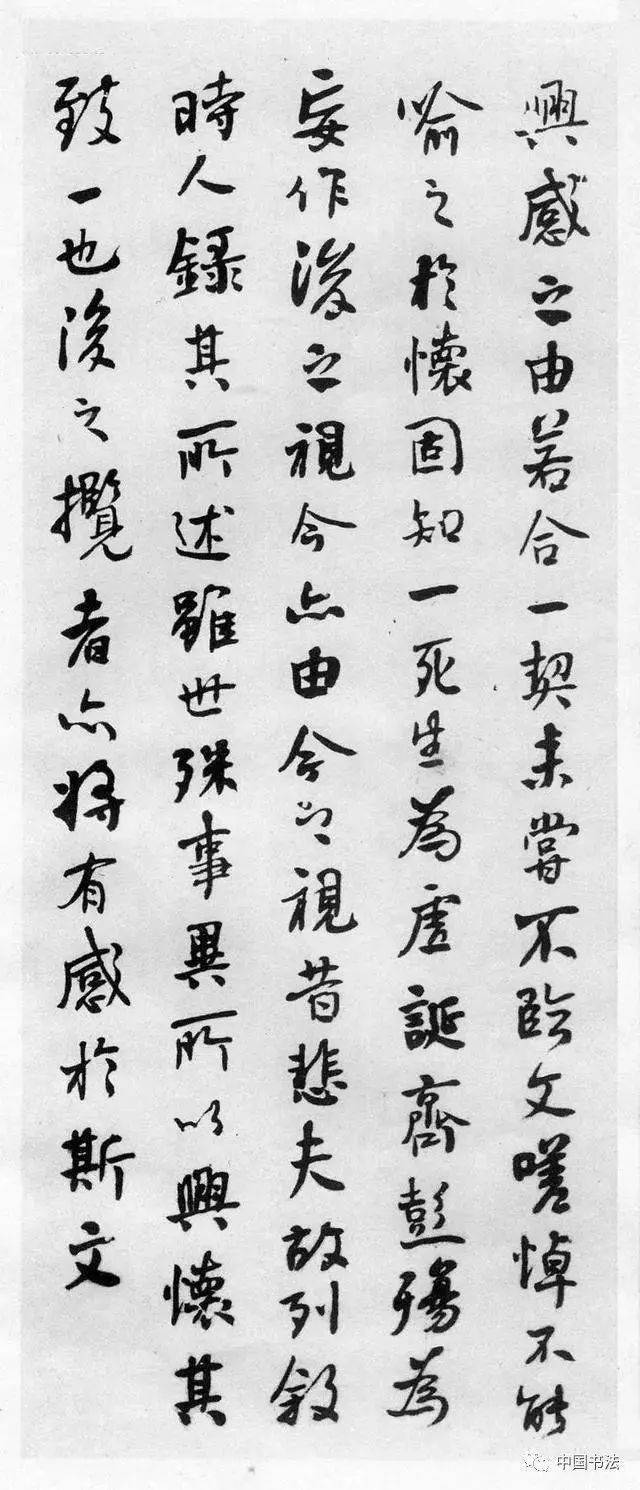 興感之由若合一契未嘗不臨文嗟悼不能
喻之於懷固知一死生為虛誕齊彭殤為
妄作後之視今亦由今之視昔悲夫故列敘
時人錄其所述雖世殊事異所以興懷其
致一也後之攬者亦將有感於斯文
中国书法